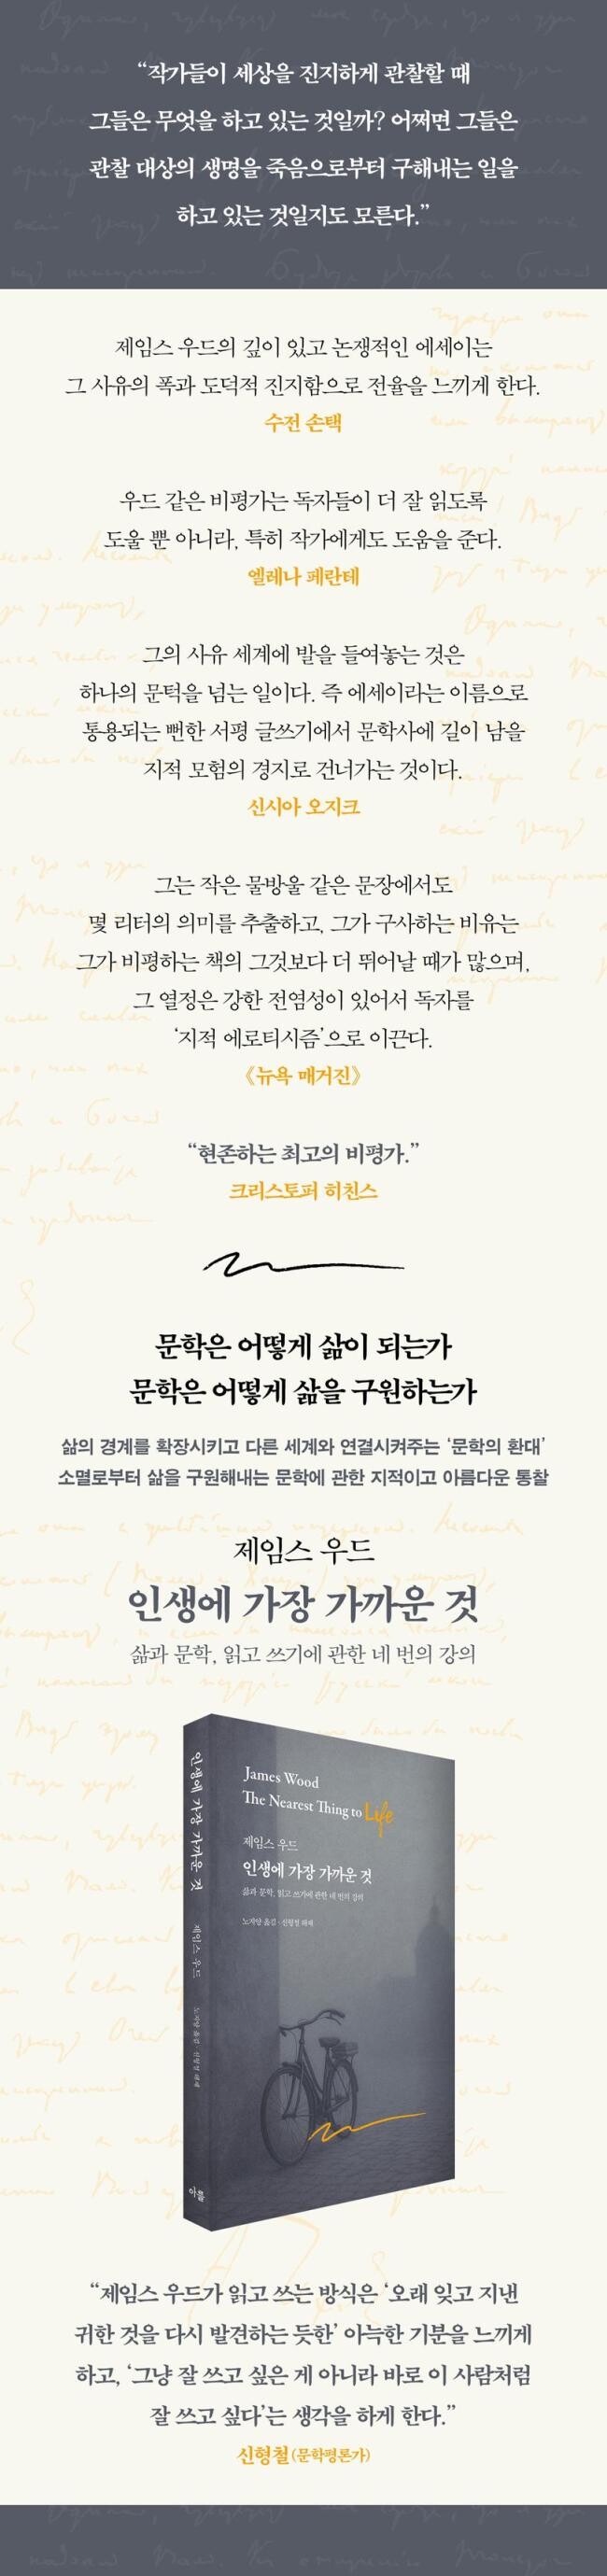 “작가들이 세상을 진지하게 관찰할 때
그들은 무엇을 하고 있는 것일까? 어쩌면 그들은
관찰 대상의 생명을 죽음으로부터 구해내는 일을
하고 있는 것일지도 모른다.”
제임스 우드의 깊이 있고 논쟁적인 에세이는
그 사유의 폭과 도덕적 진지함으로 전율을 느끼게 한다.
수전 손택
우드 같은 비평가는 독자들이 더 잘 읽도록
도울 뿐 아니라, 특히 작가에게도 도움을 준다.
엘레나 페란테
그의 사유 세계에 발을 들여놓는 것은
하나의 문턱을 넘는 일이다. 즉 에세이라는 이름으로
통용되는 뻔한 서평 글쓰기에서 문학사에 길이 남을
지적 모험의 경지로 건너가는 것이다.
신시아 오지크
그는 작은 물방울 같은 문장에서도
몇 리터의 의미를 추출하고, 그가 구사하는 비유는
그가 비평하는 책의 그것보다 더 뛰어날 때가 많으며,
그 열정은 강한 전염성이 있어서 독자를
‘지적 에로티시즘’으로 이끈다.
《뉴욕 매거진》
“현존하는 최고의 비평가.”
크리스토퍼 히친스
문학은 어떻게 삶이 되는가
문학은 어떻게 삶을 구원하는가
삶의 경계를 확장시키고 다른 세계와 연결시켜주는 ‘문학의 환대’
소멸로부터 삶을 구원해내는 문학에 관한 지적이고 아름다운 통찰
제임스 우드
인생에 가장 가까운 것
삶과 문학, 읽고 쓰기에 관한 네 번의 강의
James Wood
The Nearest Thing to Life
제임스 우드
인생에 가장 가까운 것
삶과 문학, 읽고 쓰기에 관한 네 번의 강의
노지양 옮김 · 신형철 해제
인생에 가장 가까운 것
제임스 우드
노지양 옮김 · 신형철 해제
아를
“제임스 우드가 읽고 쓰는 방식은 ‘오래 잊고 지낸
귀한 것을 다시 발견하는 듯한’ 아늑한 기분을 느끼게
하고, ‘그냥 잘 쓰고 싶은 게 아니라 바로 이 사람처럼
잘 쓰고 싶다’는 생각을 하게 한다.”
신형철(문학평론가)